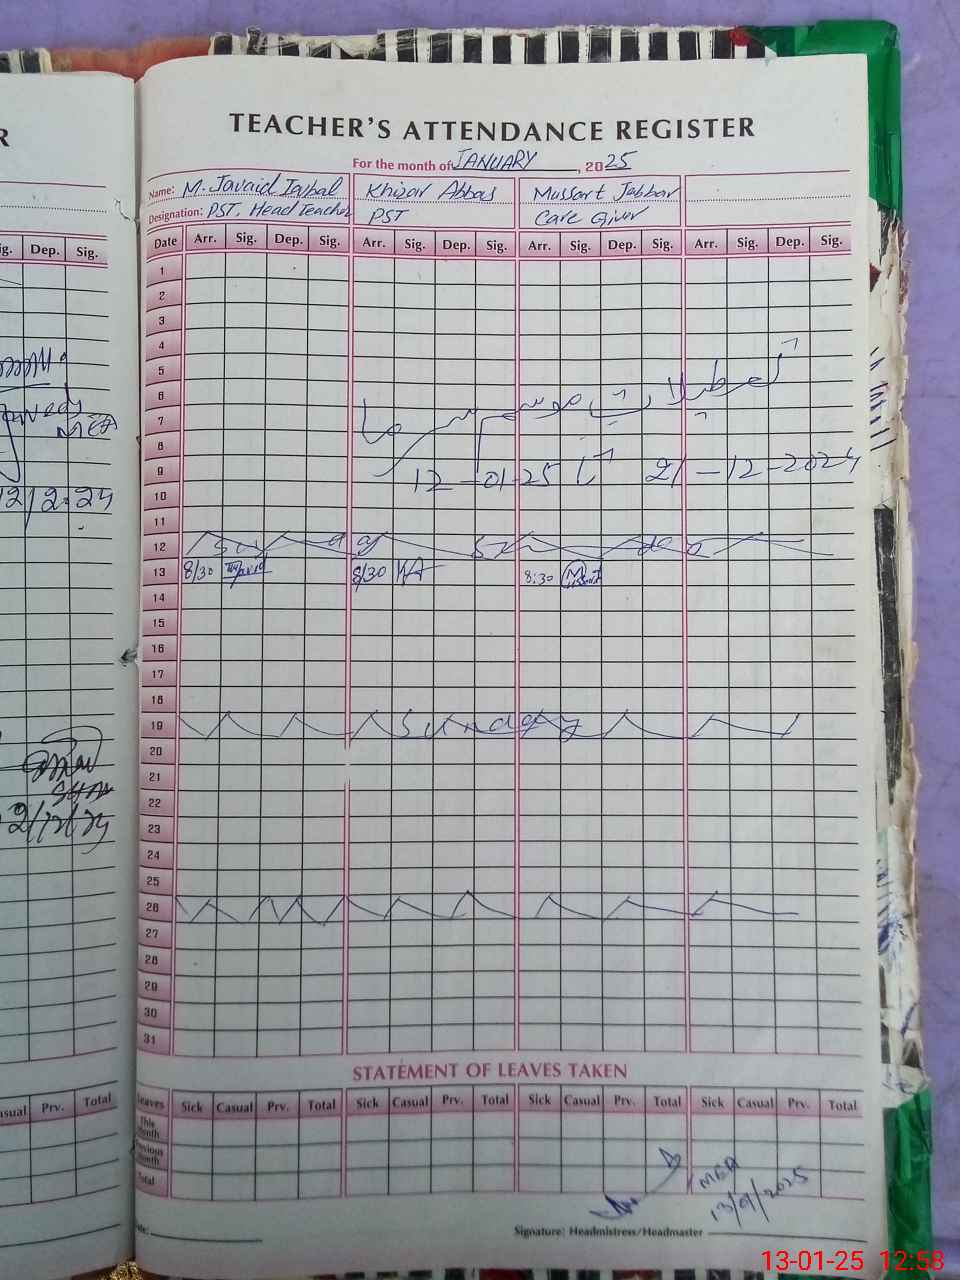 R
TEACHER'S ATTENDANCE REGISTER
For the month of JANUARY, 2025
Name: M. Javaid Iqbal Khizar Abbas Mussart Jabbar
Designation: PST, Head Teacher PST Care Giver
Date Arr. Sig. Dep. Sig. Arr. Sig. Dep. Sig. Arr. Sig. Dep. Sig. Arr. Sig. Dep. Sig.
ig. Dep. Sig.
1
2
3
4
5
6
7
تعطیلات موسم سرما
8
9
12-01-25 تا 21-12-2024
10
11
12 Sunday Sunday
13 8/30 Javid 8/30 KA 8:30
14
15
16
17
18
19 Sunday
20
21
22
23
24
25
26
27
28
29
30
31
MEA
12/2.24
2/12/24
STATEMENT OF LEAVES TAKEN
Leaves Sick Casual Prv. Total Sick Casual Prv. Total Sick Casual Prv. Total Sick Casual Prv. Total
asual Prv. Total
This Month
Previous Month
Total
MEA
13/01/2025
Signature: Headmistress/Headmaster
13-01-25 12:58